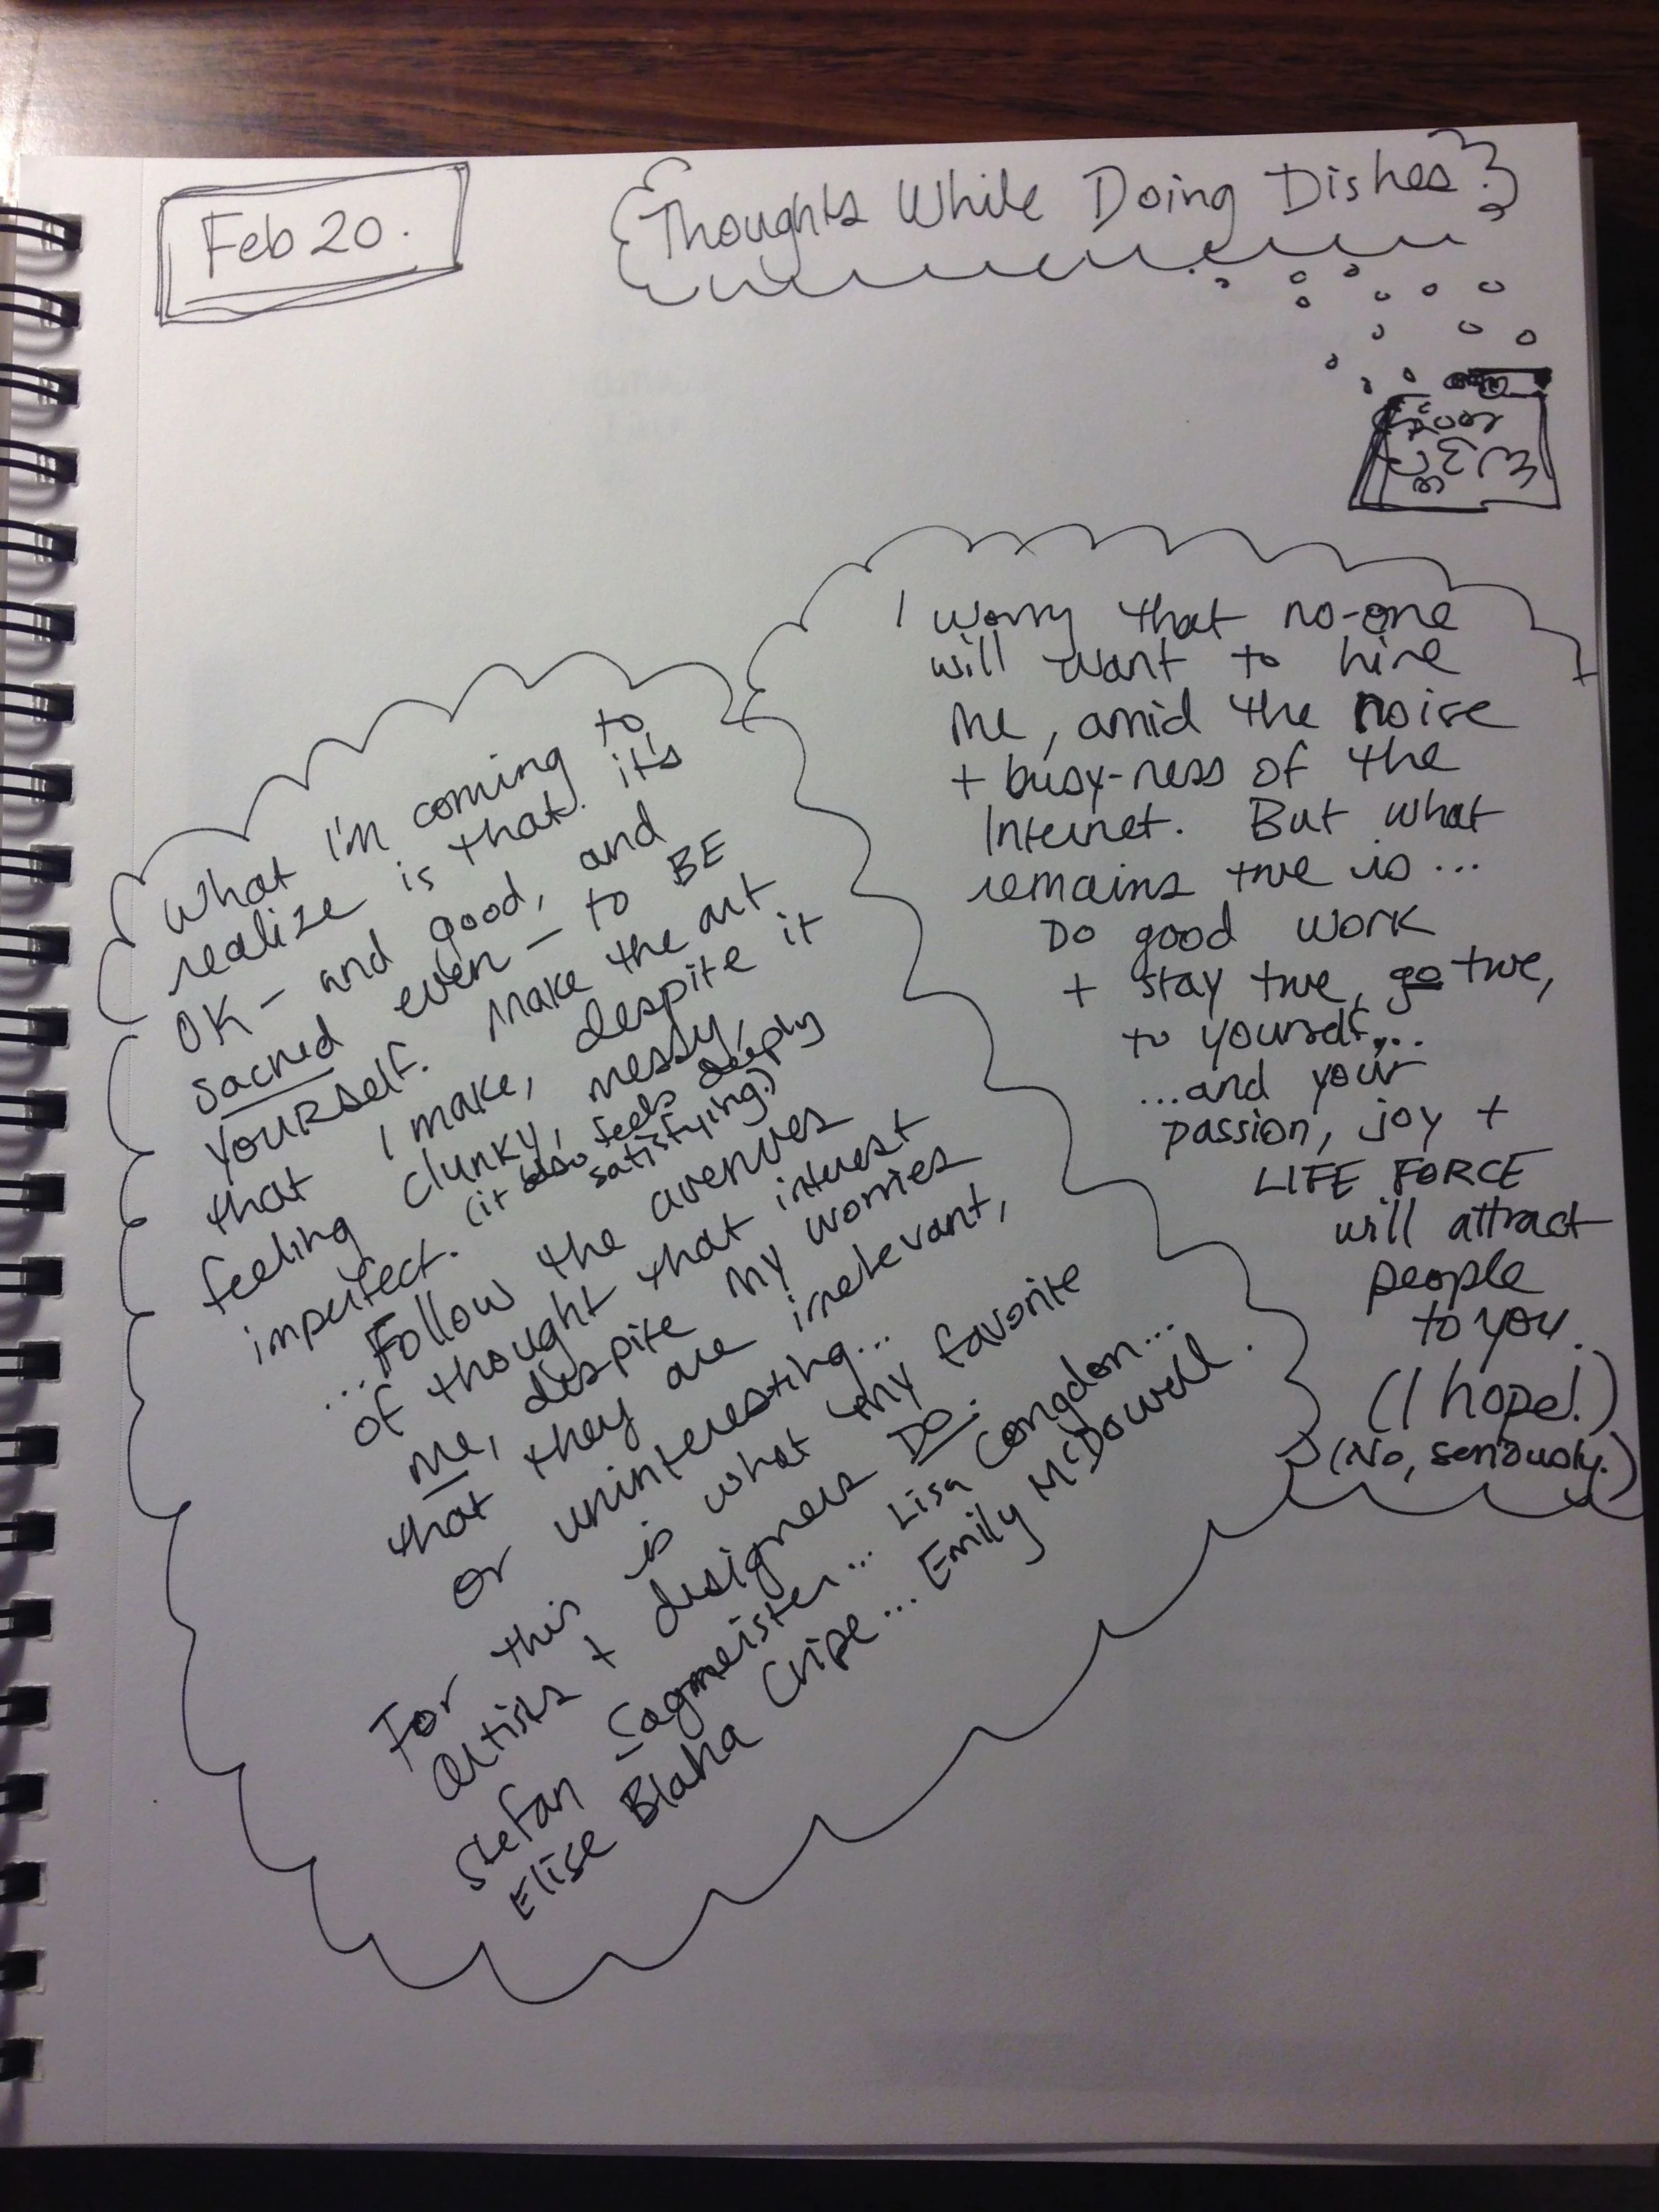 Feb 20.
Thoughts While Doing Dishes
What I'm coming to
realize is that it's
OK – and good, and
sacred even – to BE
YOURSelf. Make the art
that I make, despite it
feeling clunky, messy,
imperfect. (it also feels deeply
satisfying.)
...Follow the avenues
of thought that interest
me, despite my worries
that they are irrelevant,
or uninteresting...
For this is what my favorite
artists + designers DO.
Stefan Sagmeister... Lisa Congdon...
Elise Blaha Cripe... Emily McDowell.
I worry that no-one
will want to hire
me, amid the noise
+ busy-ness of the
Internet. But what
remains true is...
Do good work
+ stay true, go true,
to yourself...
...and your
passion, joy +
LIFE FORCE
will attract
people
to you.
(I hope!)
(No, seriously.)